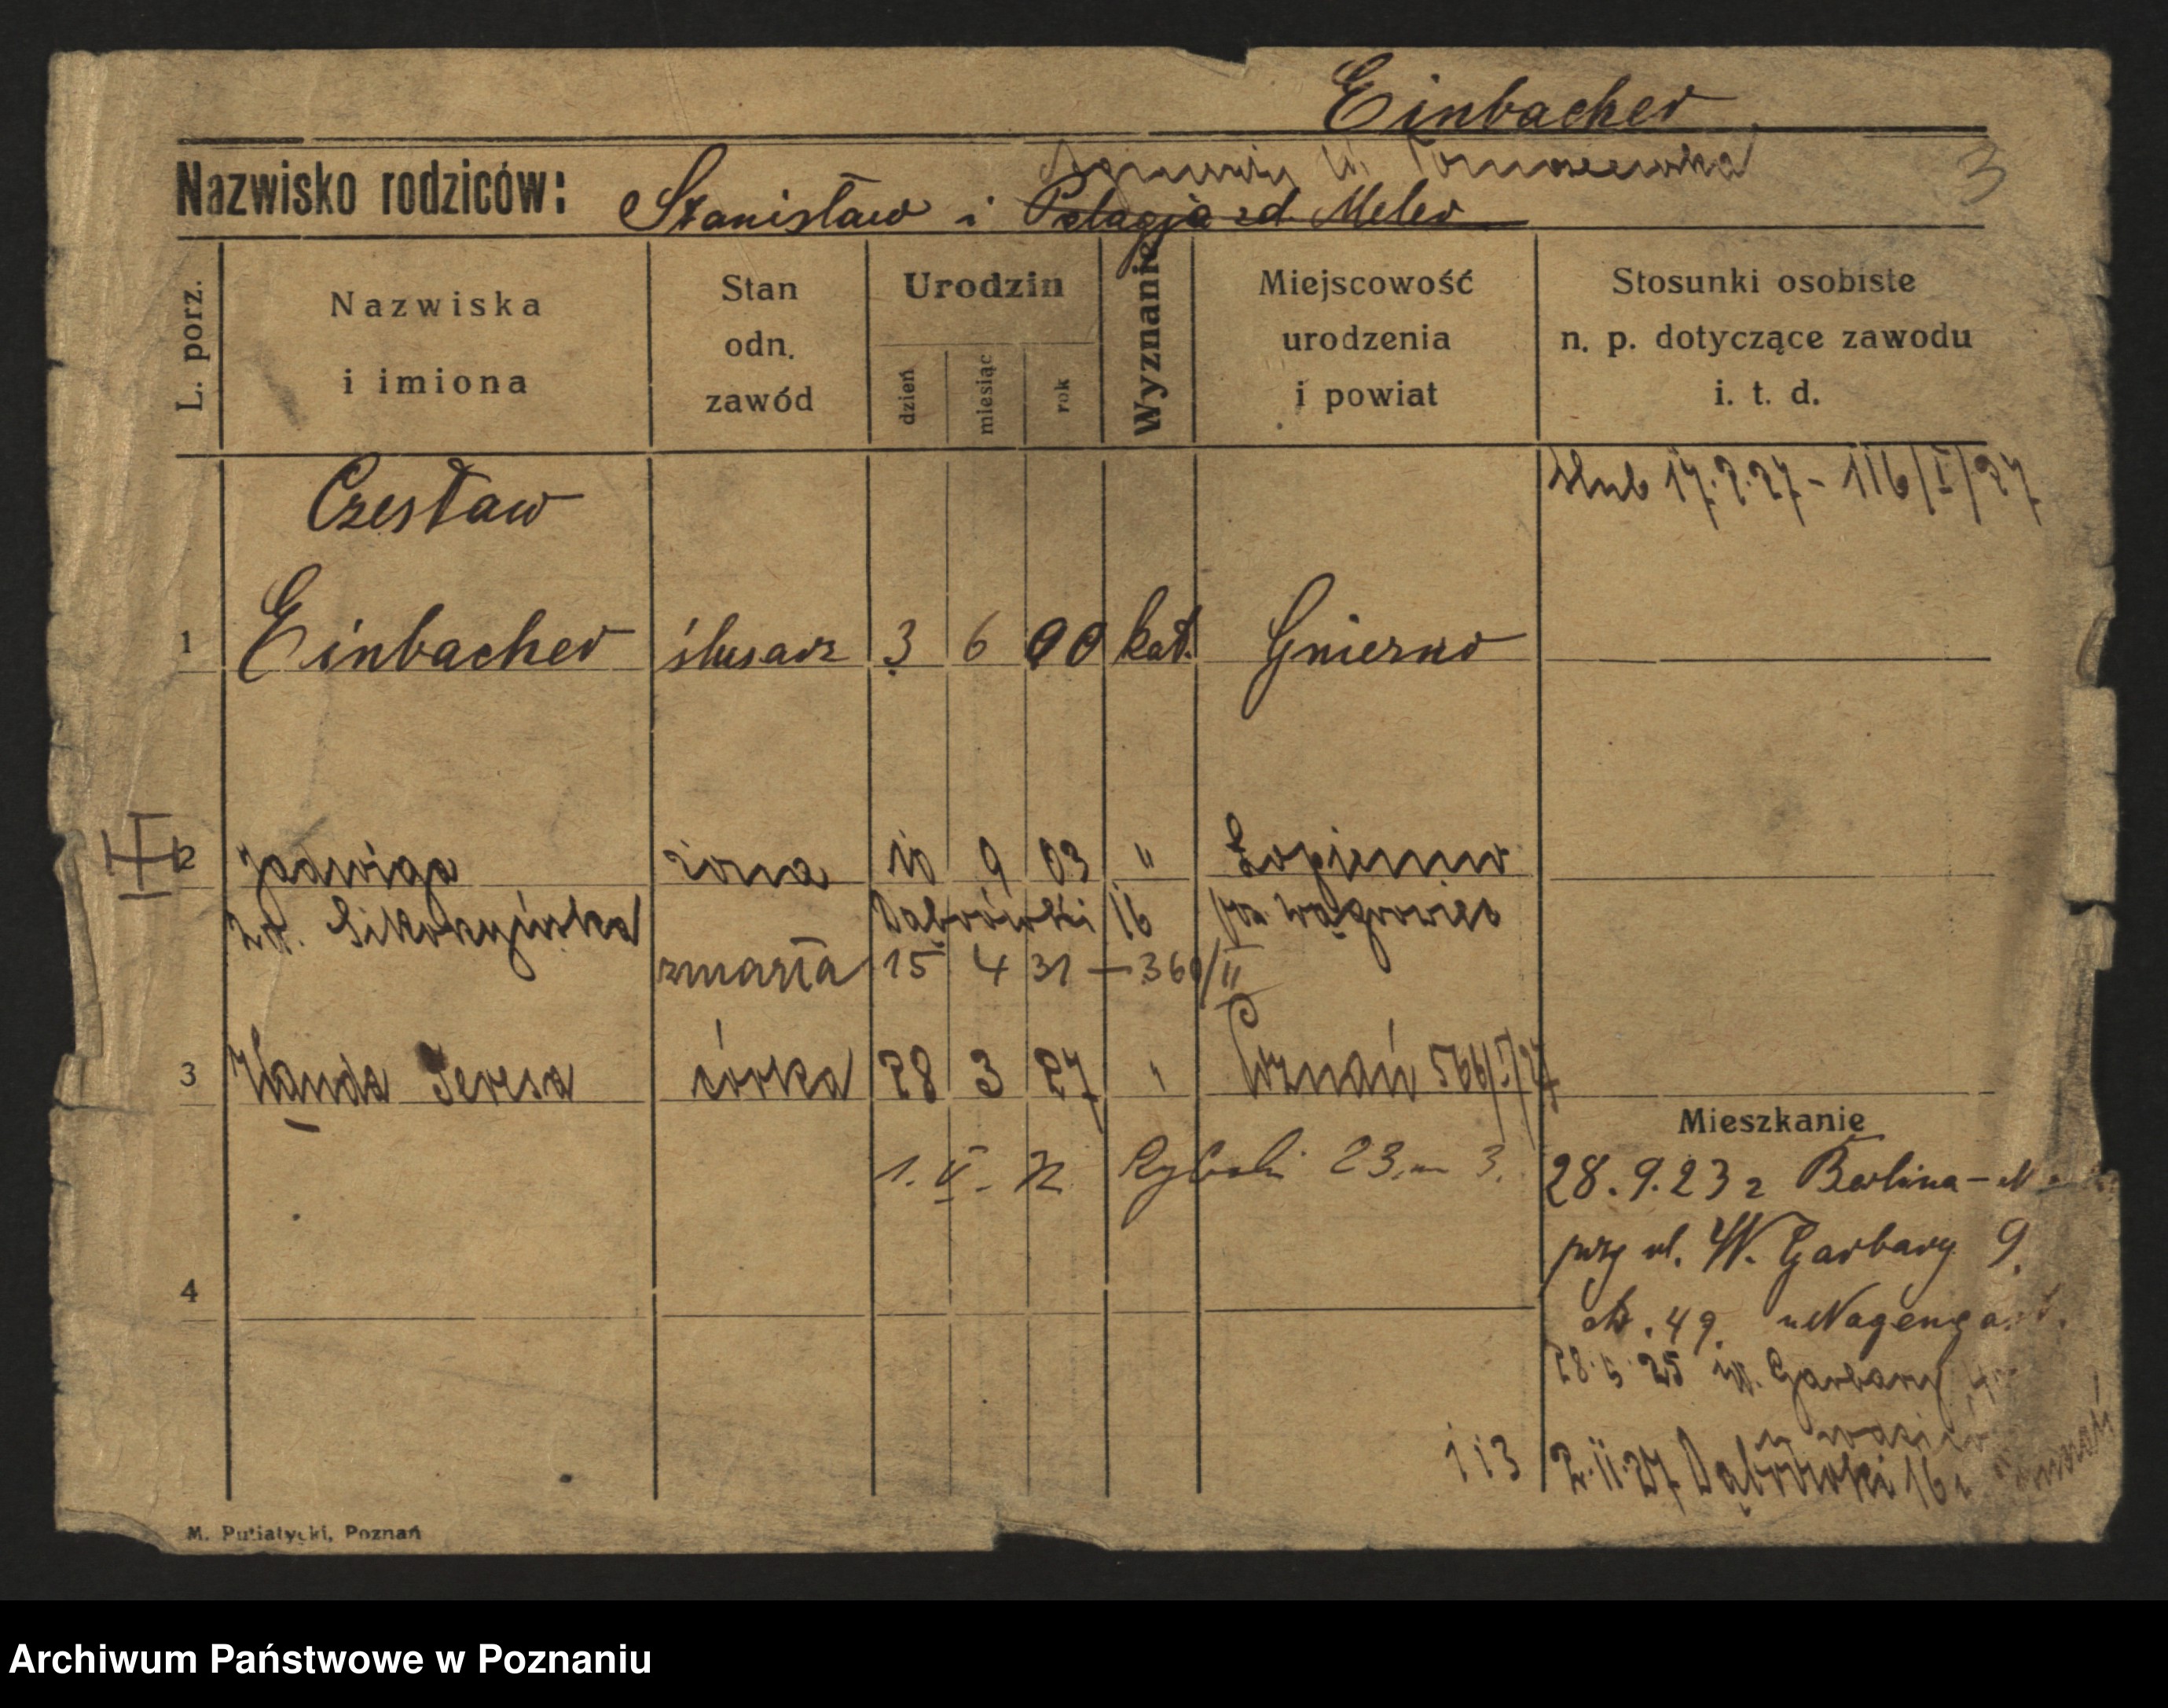 Einbacher
3
Nazwisko rodziców: Stanisław i Pelagja zd. Meler
Tomaszewska
L. porz.
Nazwiska
i imiona
Stan
odn.
zawód
Urodzin
dzień
miesiąc
rok
Wyznanie
Miejscowość
urodzenia
i powiat
Stosunki osobiste
n. p. dotyczące zawodu
i. t. d.
ślub 17.2.27 - 116/I/27
Czesław
1 Einbacher ślusarz 3 6 00 kat. Gniezno
2 Jadwiga żona 10 9 03 " Łopienno
zd. Dąbrówki 16 pow. Wągrowiec
zmarła 15 4 31 - 360/II
3 Wanda Teresa córka 28 3 27 " Poznań 566/I/27
Mieszkanie
1. V. 32 Rybaki 23 m 3.
28.9.23 z Berlina
przy ul. W. Garbary 9.
4
49.
28.5.25 W. Garbary
113 2.II.27 Dąbrówki 16
M. Putiatycki, Poznań
Archiwum Państwowe w Poznaniu